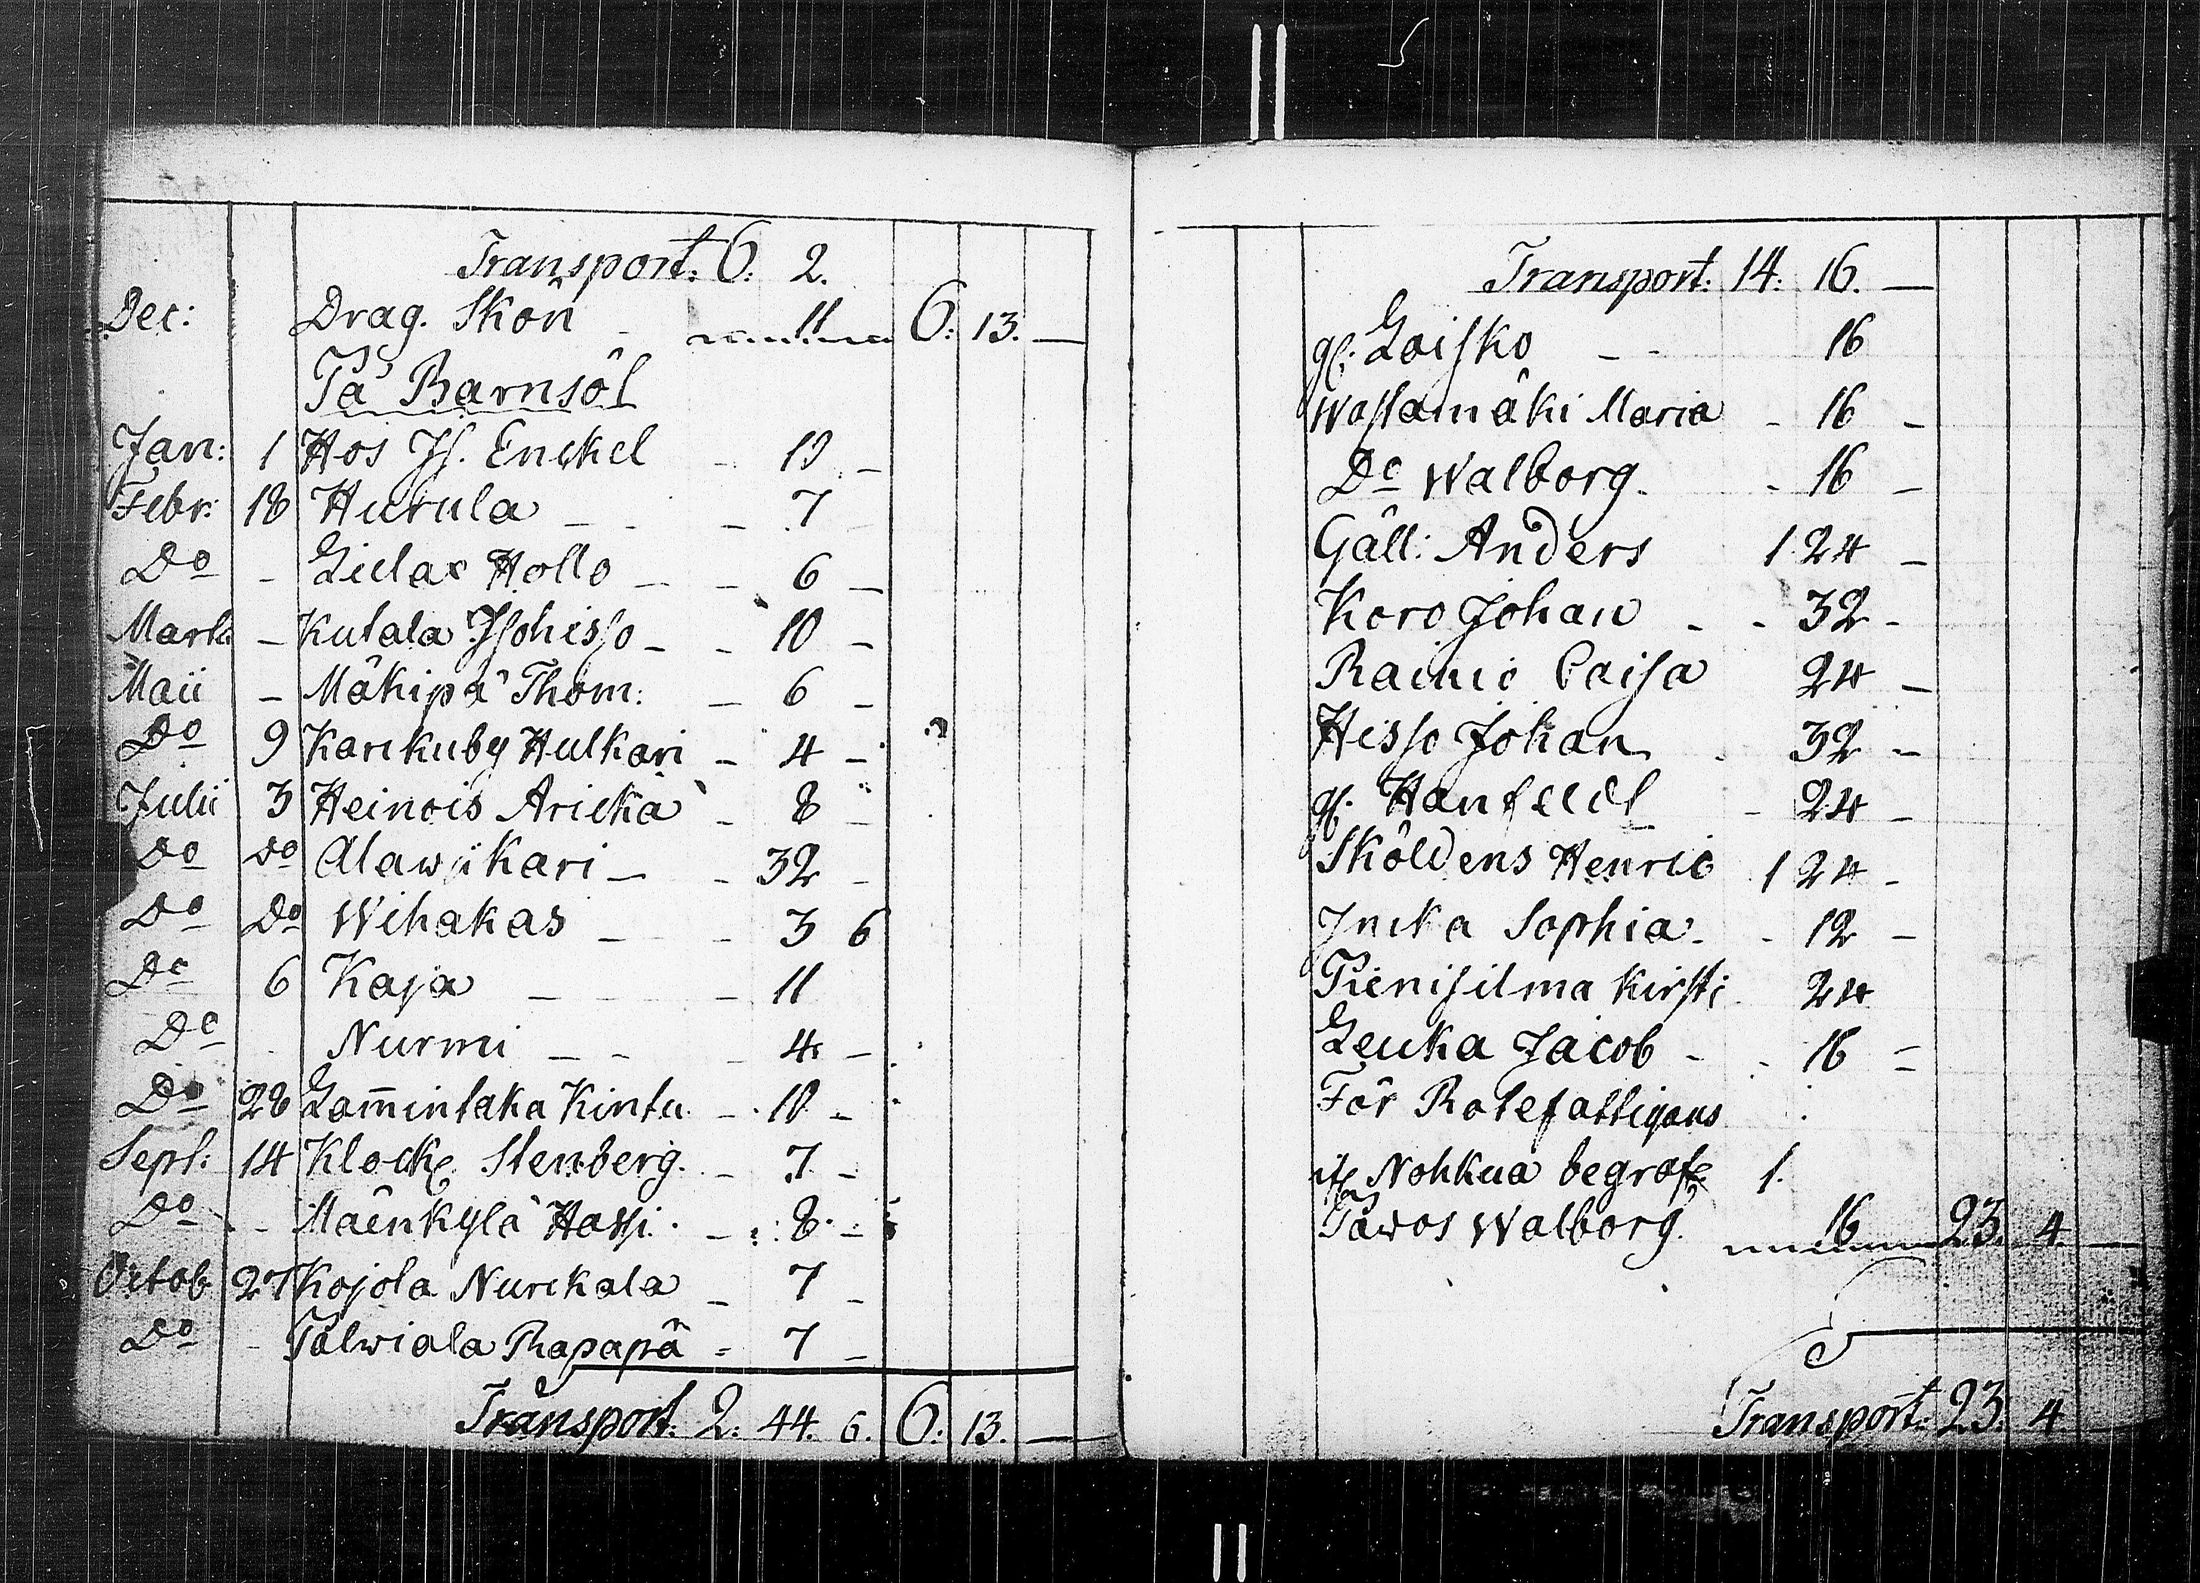 Transport: 6: 2.
Dec: Drag. Skön 11 6: 13. —
På Barnsöl
Jan: 1 Hos Enckel - 13 -
Febr: 18 Hurula - 7
Do - Hollo - 6 -
- Kutala - 10 -
Maii - Mäkipä Thom: - 6 -
Do 9 Karikuby Hulkari - 4 -
Julii 3 Heinois - 8 -
Do Do Alawiikari - 32 -
Do Do Wihakas - 3 6
Do 6 Kaja - 11
Do Nurmi - 4 -
Do 28 Lam̅intaka - 10 -
Sept: 14 Stenberg. - 7 -
Do - Mäenkylä Hassi. - 8 -
Octob 27 Kojola Nurckala - 7 -
Do - Talwiala Rapapä - 7 -
Transport: 2: 44. 6. 6: 13. —
Transport: 14: 16. —
gl. Loisko - 16
Maria - 16 -
Do Walborg. - 16 -
Gäll: Anders 1 24 -
Koro Johan - 32 -
Rainio Caisa 24 -
Hisso Johan 32 -
gl. - 24 -
Sköldens Henric 1 24 -
Sophia - 12 -
Pienisilma Kirsti 24
Leuka Jacob - 16 -
För Rotefattigans
Nohkua begrafn. 1.
Walborg. 16 23. 4. —
Transport: 23: 4